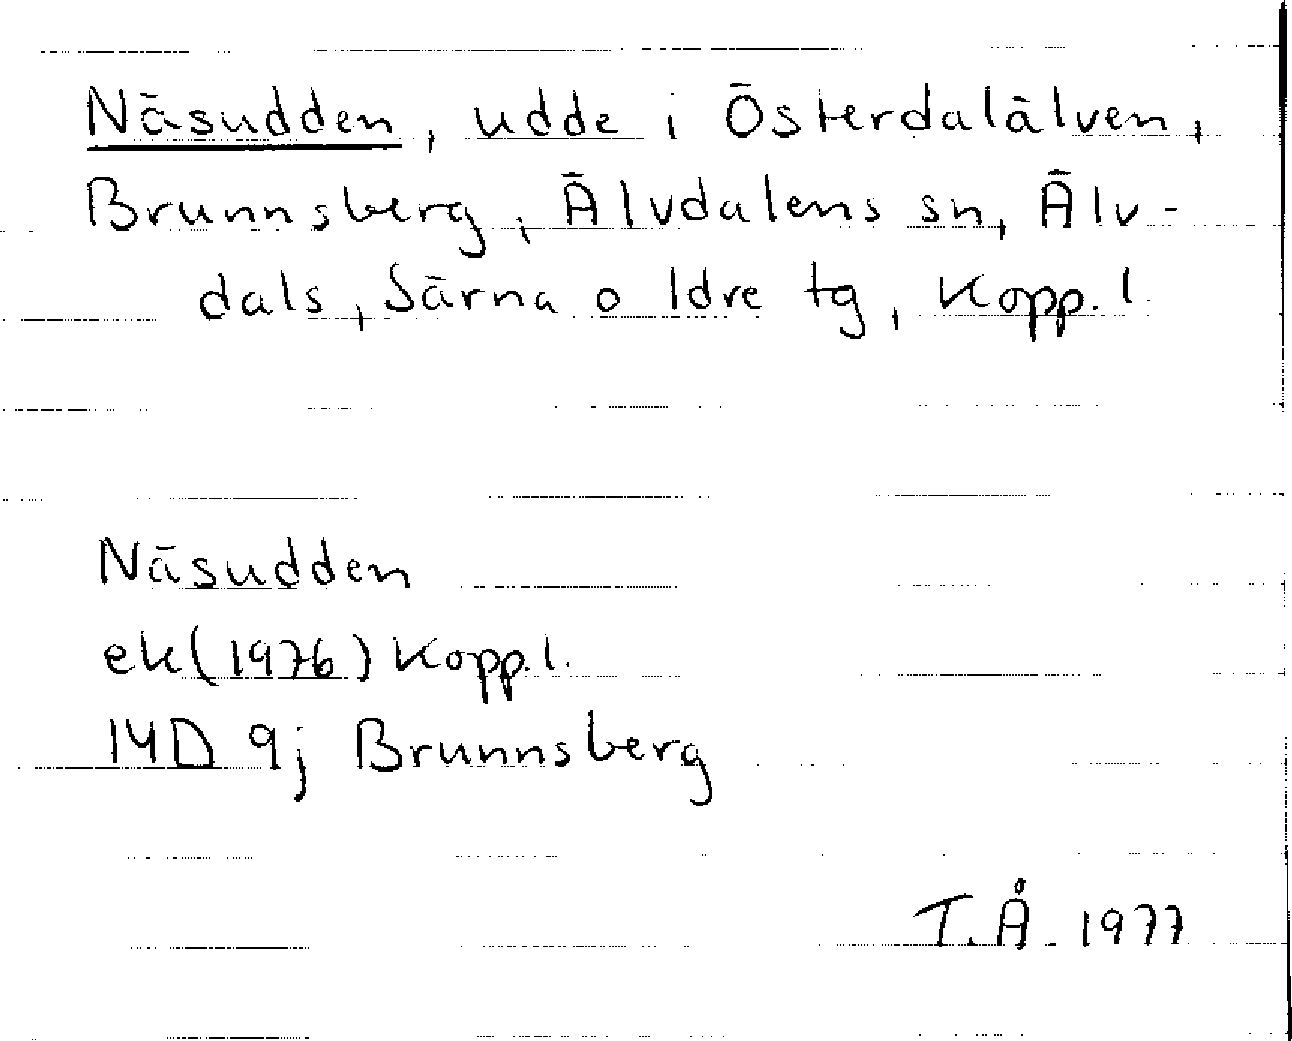 Näsudden, udde i Österdalälven,
Brunnsberg, Älvdalens sn, Älv-
dals, Särna o Idre tg, Kopp. l.
Näsudden
ek (1976) Kopp. l.
14D 9j Brunnsberg
T.Å. 1977